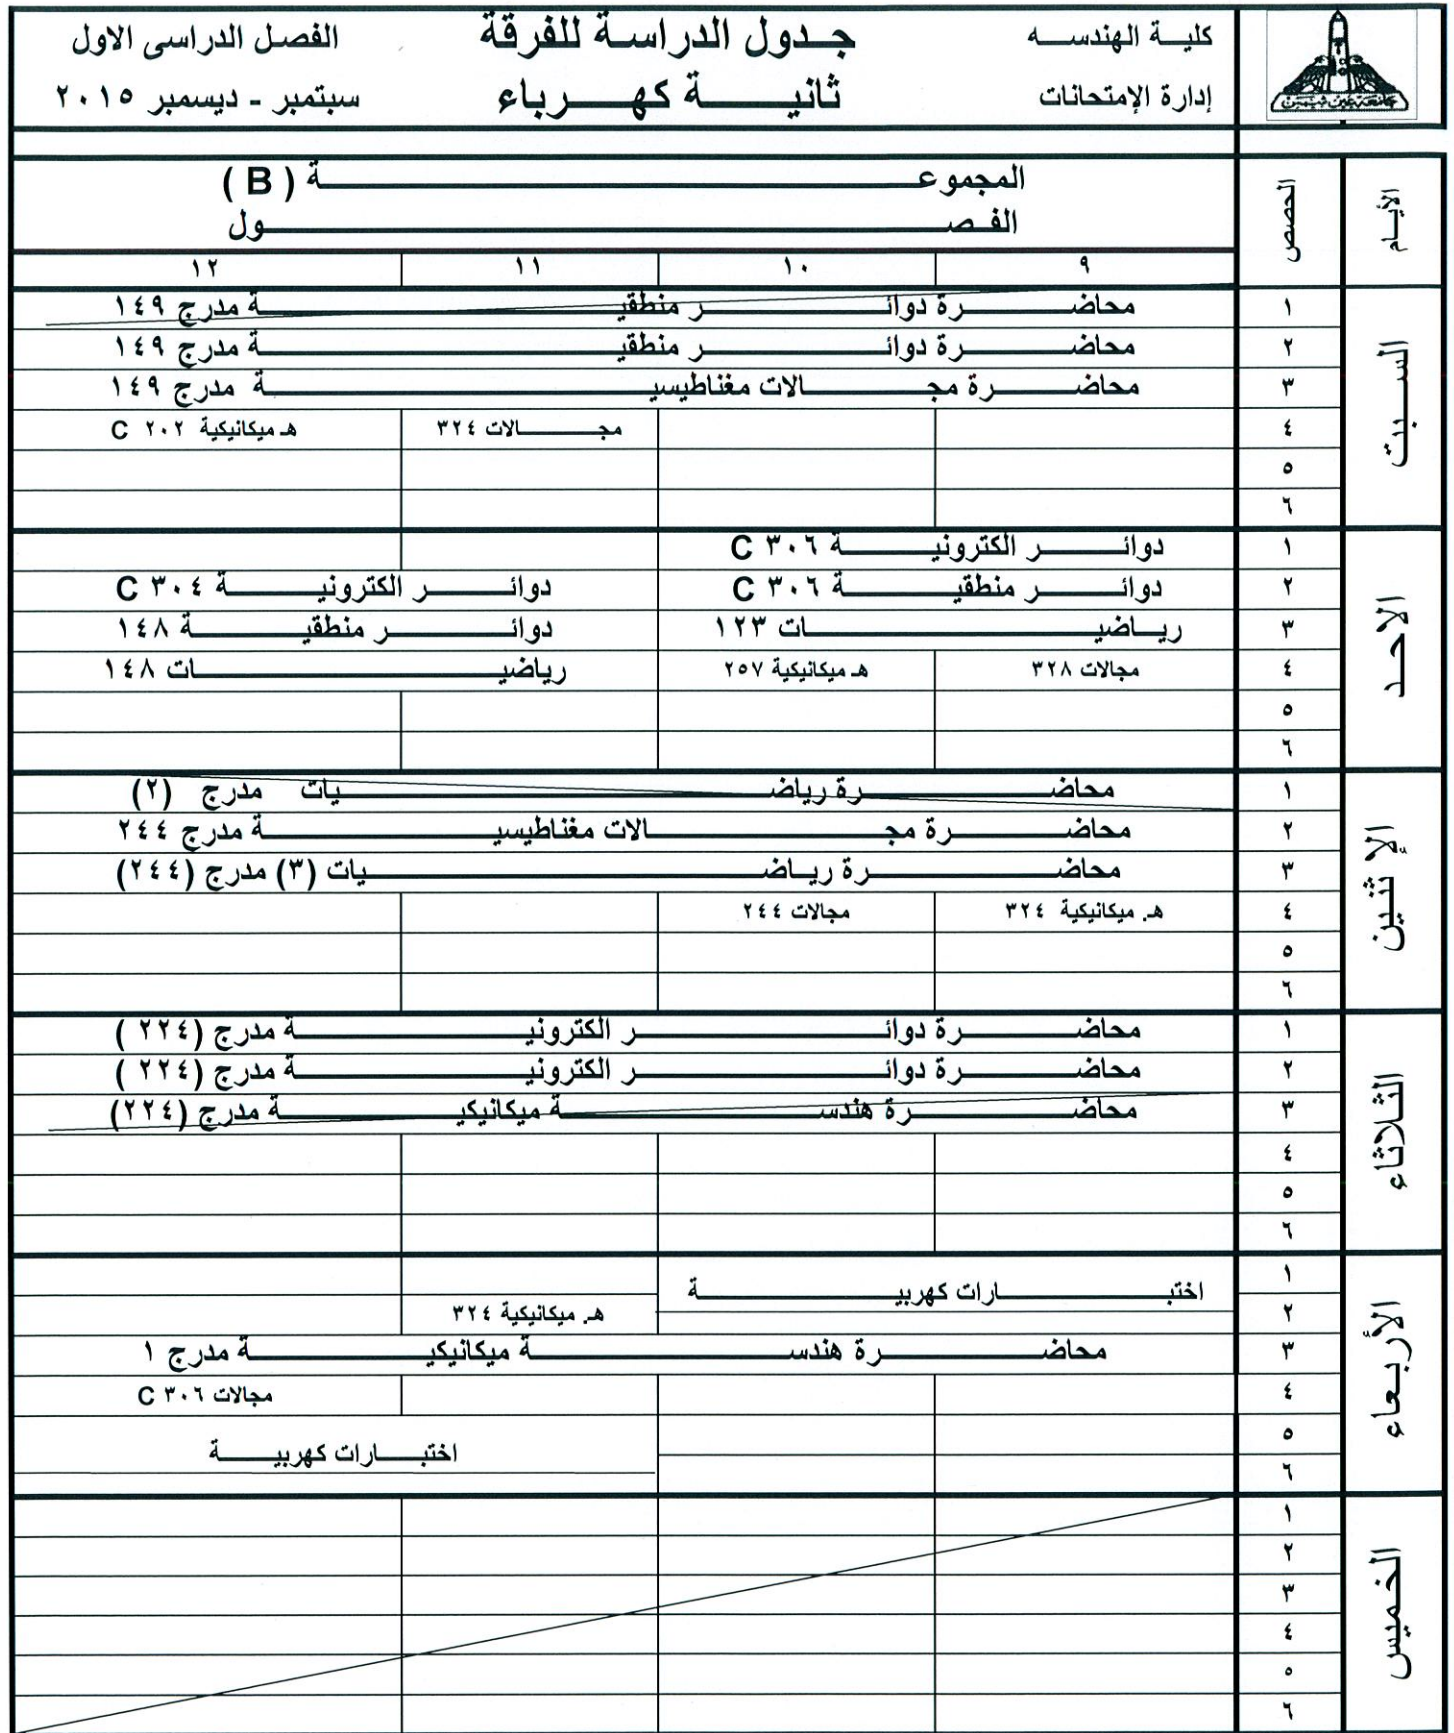 كلية الهندسه
جدول الدراسة للفرقة
الفصل الدراسى الاول
إدارة الإمتحانات
ثانية كهرباء
سبتمبر - ديسمبر ٢٠١٥
جامعة عين شمس
الأيام
الحصص
المجموعة ( B )
الفصول
٩ ١٠ ١١ ١٢
السبت
١ محاضرة دوائر منطقية مدرج ١٤٩
٢ محاضرة دوائر منطقية مدرج ١٤٩
٣ محاضرة مجالات مغناطيسية مدرج ١٤٩
٤ مجالات ٣٢٤ هـ ميكانيكية ٢٠٢ C
٥
٦
الاحد
١ دوائر الكترونية ٣٠٦ C
٢ دوائر منطقية ٣٠٦ C دوائر الكترونية ٣٠٤ C
٣ رياضيات ١٢٣ دوائر منطقية ١٤٨
٤ مجالات ٣٢٨ هـ ميكانيكية ٢٥٧ رياضيات ١٤٨
٥
٦
الإثنين
١ محاضرة رياضيات مدرج (٢)
٢ محاضرة مجالات مغناطيسية مدرج ٢٤٤
٣ محاضرة رياضيات (٣) مدرج (٢٤٤)
٤ هـ. ميكانيكية ٣٢٤ مجالات ٢٤٤
٥
٦
الثلاثاء
١ محاضرة دوائر الكترونية مدرج (٢٢٤ )
٢ محاضرة دوائر الكترونية مدرج (٢٢٤ )
٣ محاضرة هندسة ميكانيكية مدرج (٢٢٤)
٤
٥
٦
الأربعاء
١ اختبارات كهربية
٢ هـ. ميكانيكية ٣٢٤
٣ محاضرة هندسة ميكانيكية مدرج ١
٤ مجالات ٣٠٦ C
٥ اختبارات كهربية
٦
الخميس
١
٢
٣
٤
٥
٦